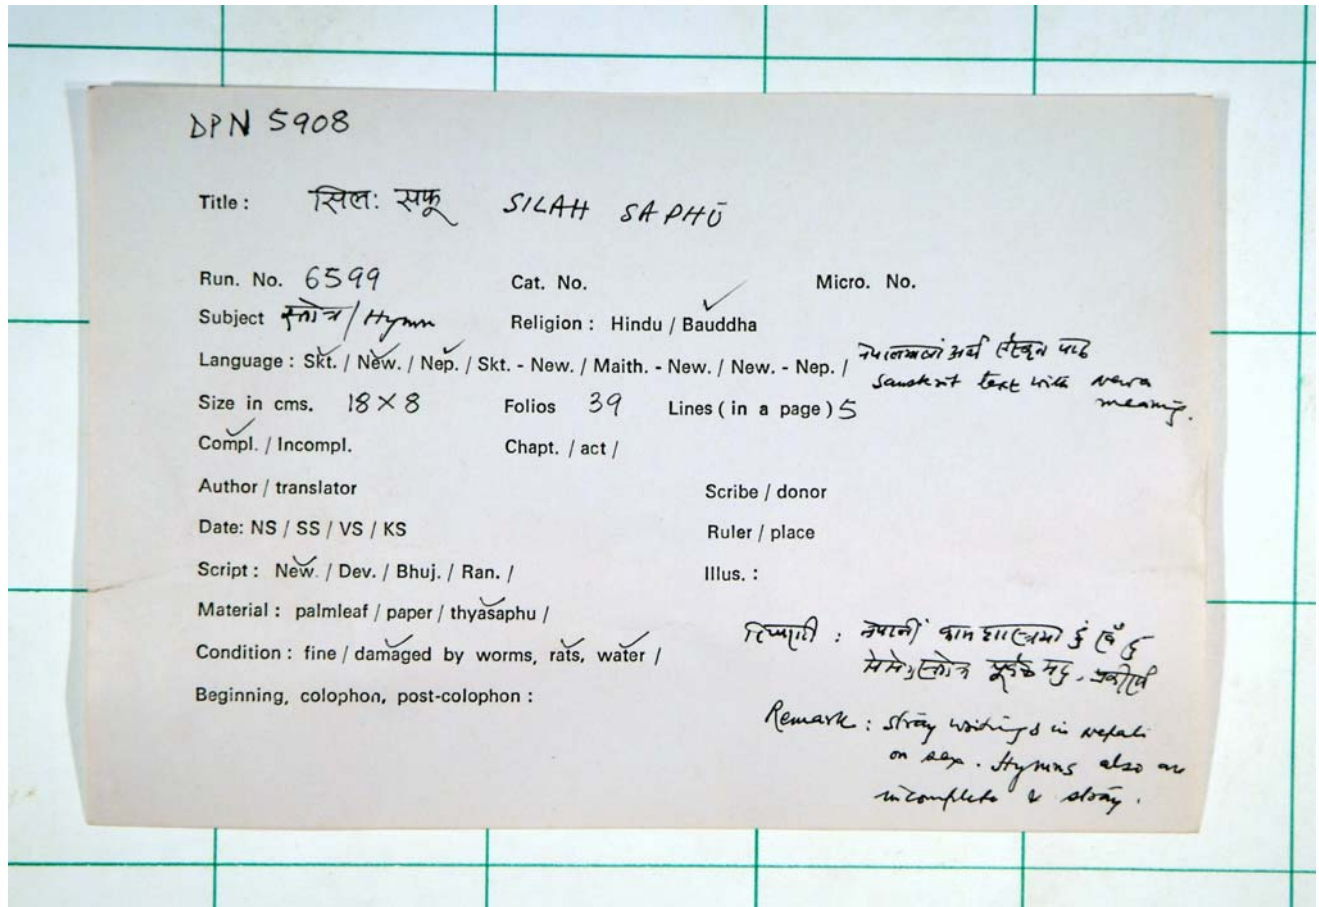 DPN 5908
Title : सिल: सफू SILAH SAPHŪ
Run. No. 6599 Cat. No. Micro. No.
Subject स्तोत्र / Hymn Religion : Hindu / Bauddha
Language : Skt. / New. / Nep. / Skt. - New. / Maith. - New. / New. - Nep. /
Sanskrit text with newa
meaning.
Size in cms. 18 X 8 Folios 39 Lines ( in a page ) 5
Compl. / Incompl. Chapt. / act /
Author / translator Scribe / donor
Date: NS / SS / VS / KS Ruler / place
Script : New. / Dev. / Bhuj. / Ran. / Illus. :
Material : palmleaf / paper / thyasaphu /
Condition : fine / damaged by worms, rats, water /
Beginning, colophon, post-colophon :
टिप्पणी :
Remark : stray writings in nepali
on sex. Hymns also are
incomplete & stray.